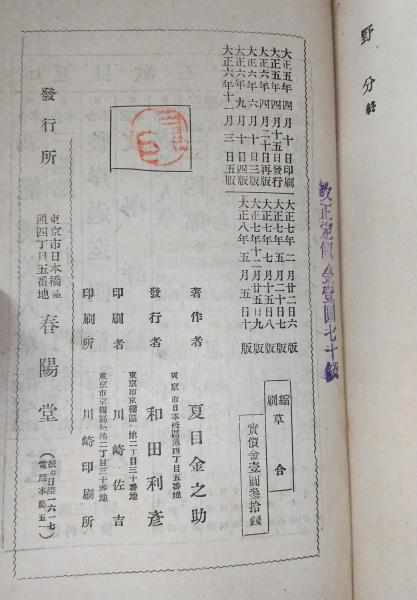 野分 終
改正定價 金壹圓七十錢
縮刷 草合
實價金壹圓參拾錢
大正五年四月十日印刷
大正五年四月十五日發行
大正六年四月二十日再版
大正六年六月十日三版
大正六年九月十日四版
大正六年十一月三日五版
大正七年二月廿二日六版
大正七年五月二十日七版
大正七年七月十五日八版
大正七年十二月廿五日九版
大正八年五月五日十版
著作者 夏目金之助
東京市日本橋區通四丁目五番地
發行者 和田利彦
東京市京橋區 地二丁目三十番地
印刷者 川崎佐吉
東京市京橋區 地二丁目三十番地
印刷所 川崎印刷所
發行所
東京市日本橋區
通四丁目五番地
春陽堂
電話本局五一